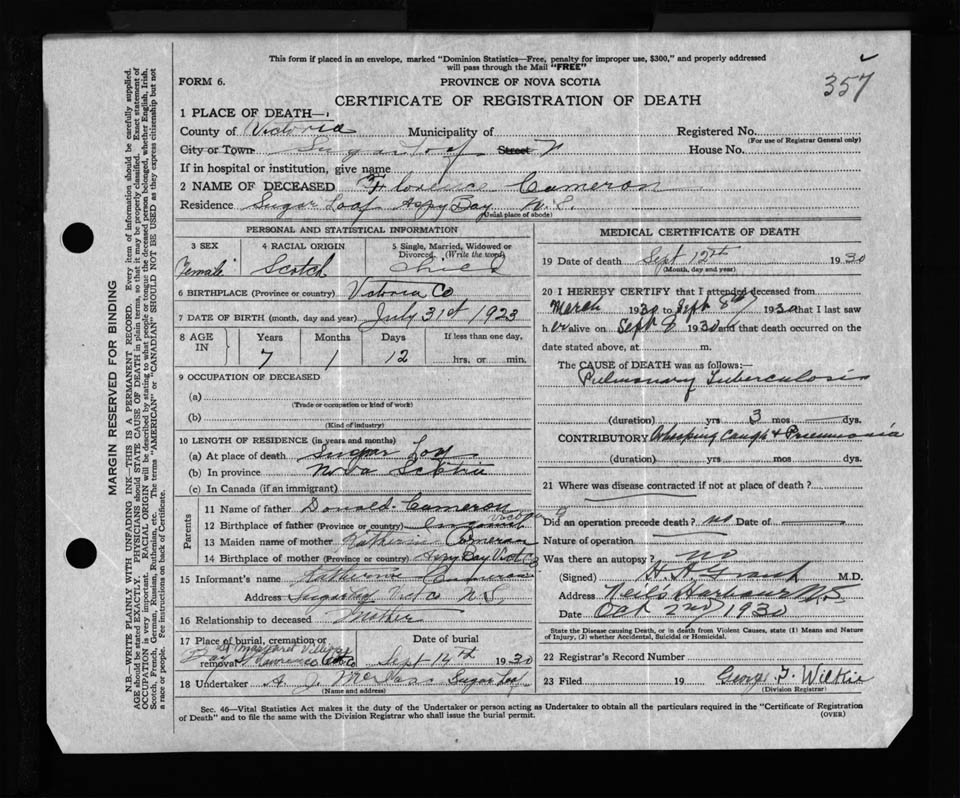 This form if placed in an envelope, marked "Dominion Statistics—Free, penalty for improper use, $300," and properly addressed
will pass through the Mail "FREE"
FORM 6. PROVINCE OF NOVA SCOTIA
357
CERTIFICATE OF REGISTRATION OF DEATH
1 PLACE OF DEATH—
County of Victoria Municipality of Registered No.
(For use of Registrar General only)
City or Town Sugar Loaf Street House No.
If in hospital or institution, give name
2 NAME OF DECEASED Florence Cameron
Residence Sugar Loaf Aspy Bay N.S.
(Usual place of abode)
PERSONAL AND STATISTICAL INFORMATION
3 SEX 4 RACIAL ORIGIN 5 Single, Married, Widowed or
Divorced. (Write the word)
Female Scotch Child
6 BIRTHPLACE (Province or country) Victoria Co
7 DATE OF BIRTH (month, day and year) July 31st 1923
8 AGE IN Years Months Days If less than one day,
7 1 12 hrs. or min.
9 OCCUPATION OF DECEASED
(a)
(Trade or occupation or kind of work)
(b)
(Kind of industry)
10 LENGTH OF RESIDENCE (in years and months)
(a) At place of death Sugar Loaf
(b) In province Nova Scotia
(c) In Canada (if an immigrant)
Parents
11 Name of father Donald Cameron
12 Birthplace of father (Province or country)
13 Maiden name of mother Katherine Cameron
14 Birthplace of mother (Province or country) Aspy Bay Vict Co
15 Informant's name Katherine Cameron
Address Sugarloaf Vict Co N.S.
16 Relationship to deceased Mother
17 Place of burial, cremation or removal Date of burial
St Margaret Village
Bay St Lawrence Vict Co Sept 14th 1930
18 Undertaker A. J. Sugar Loaf
(Name and address)
MEDICAL CERTIFICATE OF DEATH
19 Date of death Sept 12th 1930
(Month, day and year)
20 I HEREBY CERTIFY that I attended deceased from
March 1930 to Sept 8th 1930 that I last saw
her alive on Sept 8 1930 and that death occurred on the
date stated above, at m.
The CAUSE OF DEATH was as follows:—
Pulmonary Tuberculosis
(duration) yrs 3 mos dys.
CONTRIBUTORY Whooping Cough & Pneumonia
(duration) yrs. mos. dys.
21 Where was disease contracted if not at place of death?
Did an operation precede death? no Date of
Nature of operation
Was there an autopsy? no
(Signed) H. A. Grant M.D.
Address Neil's Harbour N.S
Date Oct 2nd 1930
State the Disease causing Death, or in death from Violent Causes, state (1) Means and Nature
of Injury, (?) whether Accidental, Suicidal or Homicidal.
22 Registrar's Record Number
23 Filed 19 George F. Wilkie
(Division Registrar)
Sec. 46—Vital Statistics Act makes it the duty of the Undertaker or person acting as Undertaker to obtain all the particulars required in the "Certificate of Registration
of Death" and to file the same with the Division Registrar who shall issue the burial permit.
(OVER)
MARGIN RESERVED FOR BINDING
N.B.—WRITE PLAINLY WITH UNFADING INK—THIS IS A PERMANENT RECORD. Every item of information should be carefully supplied.
AGE should be stated EXACTLY. PHYSICIANS should STATE CAUSE OF DEATH in plain terms, so that it may be properly classified. Exact statement of
OCCUPATION is very important. RACIAL ORIGIN will be described by stating to what people or tongue the deceased person belonged, whether English, Irish,
Scotch, French, German, Russian, Ruthenian, etc. The terms "AMERICAN" or "CANADIAN" SHOULD NOT BE USED as they express citizenship but not
a race or people. Fee instructions on back of Certificate.